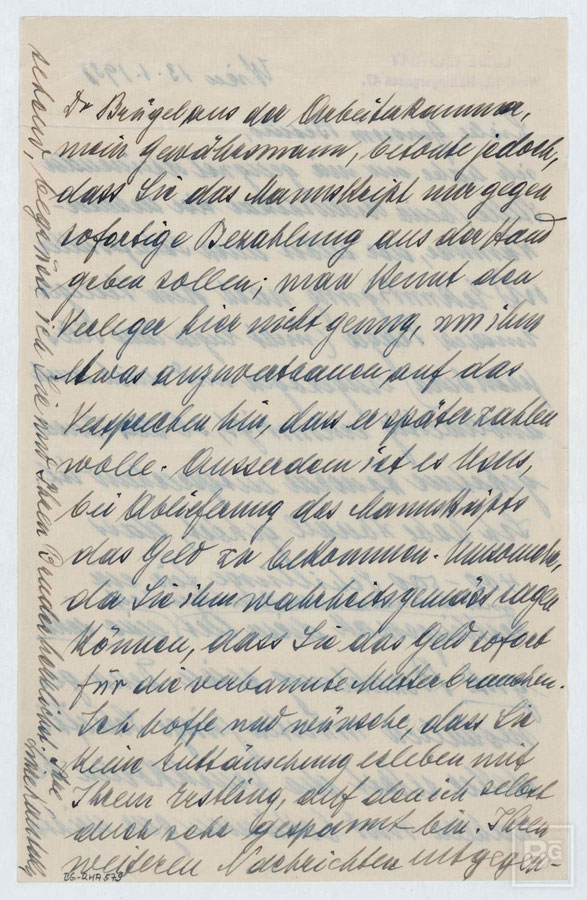 Dr Brügel aus der Arbeiterkammer,
mein Gewährsmann, betonte jedoch,
dass Sie das Manuskript nur gegen
sofortige Bezahlung aus der Hand
geben sollen; man kennt den
Verleger hier nicht genug, um ihm
etwas anzuvertrauen auf das
Versprechen hin, dass er später zahlen
wolle. Ausserdem ist es Usus,
bei Ablieferung des Manuskripts
das Geld zu bekommen. Umsomehr,
da Sie ihm wahrheitsgemäss sagen
können, dass Sie das Geld sofort
für die verbannte Mutter brauchen.
Ich hoffe und wünsche, dass Sie
keine Enttäuschung erleben mit
Ihrem Erstling, auf den ich selbst
auch sehr gespannt bin. Ihren
weiteren Nachrichten entgegen-
sehend, begrüsse ich Sie und Ihren Bruder herzlichst. Ihre
Luise Kautsky
Wien 13.1.19
RG-QHA 579
RG